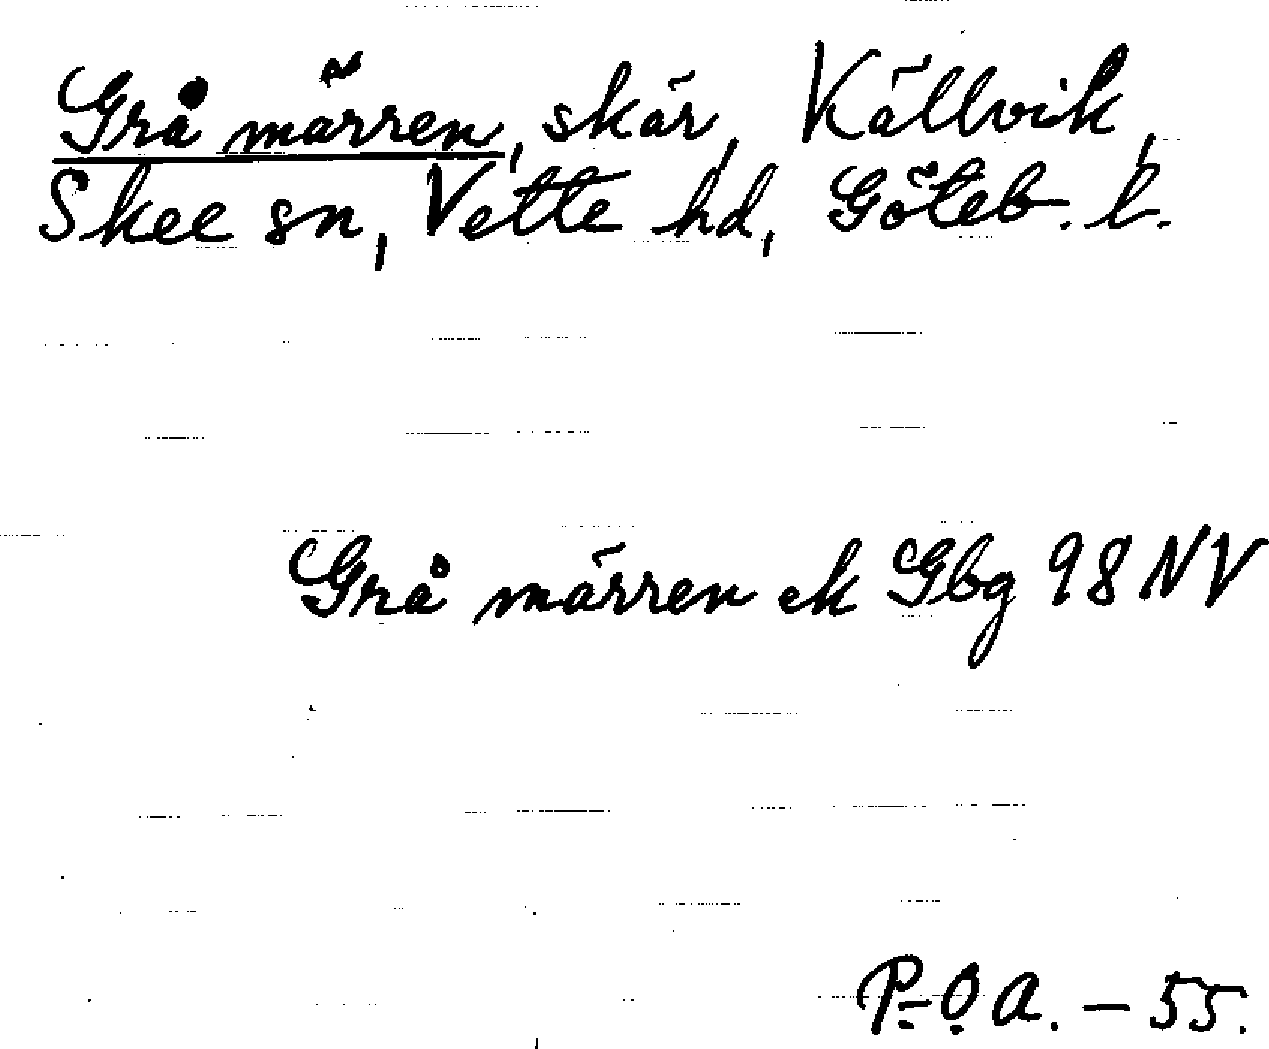 Grå märren, skär, Källvik,
Skee sn, Vette hd, Göteb. l.
Grå märren ek Gbg 98 NV
P-O A. – 55.